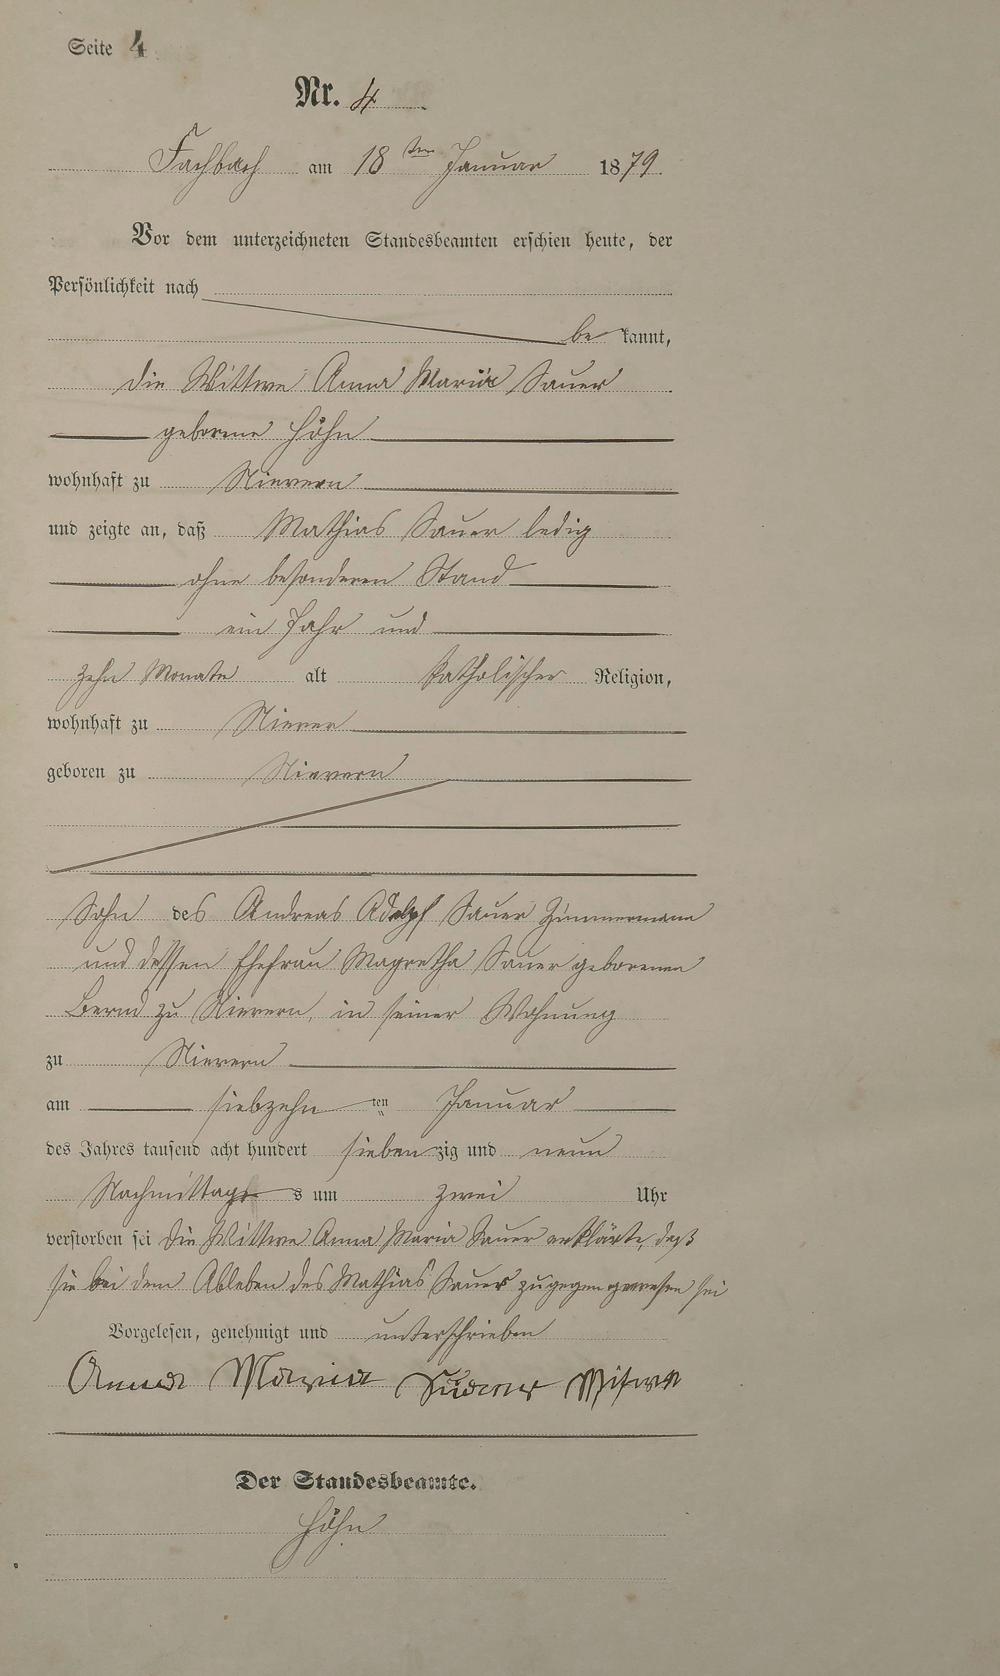 Seite 4
Nr. 4
Fachbach am 18ten Januar 1879.
Vor dem unterzeichneten Standesbeamten erschien heute, der
Persönlichkeit nach
be kannt,
die Wittwe Anna Maria Sauer
geborene Höhn
wohnhaft zu Nievern
und zeigte an, daß Mathias Sauer ledig
ohne besonderen Stand
ein Jahr und
zehn Monate alt katholischer Religion,
wohnhaft zu Niever
geboren zu Nievern
Sohn des Andreas Adolph Sauer Zimmermann
und dessen Ehefrau Magretha Sauer geborenen
Bernd zu Nievern, in seiner Wohnung
zu Nievern
am siebzehn ten Januar
des Jahres tausend acht hundert sieben zig und neun
Nachmittags um zwei Uhr
verstorben sei die Wittwe Anna Maria Sauer erklärte, daß
sie bei dem Ableben des Mathias Sauer zugegen gewesen sei
Vorgelesen, genehmigt und unterschrieben
Anna Maria
Der Standesbeamte.
Höhn